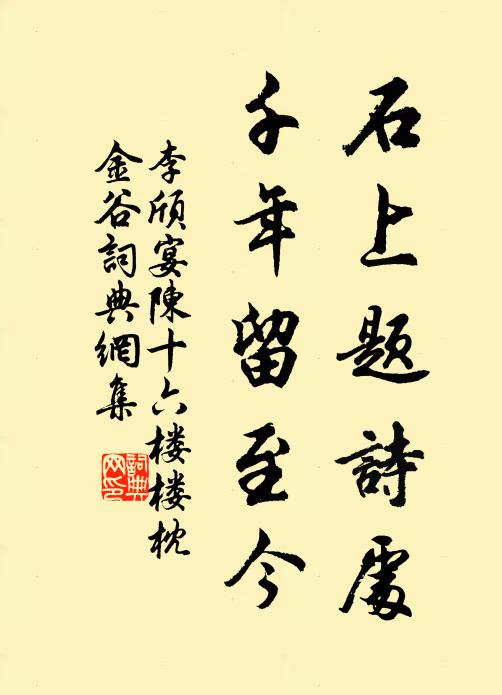 石上題詩處
千年留至今
李頎宴陳十六楼楼枕
金谷詞典網集
詞典
网印